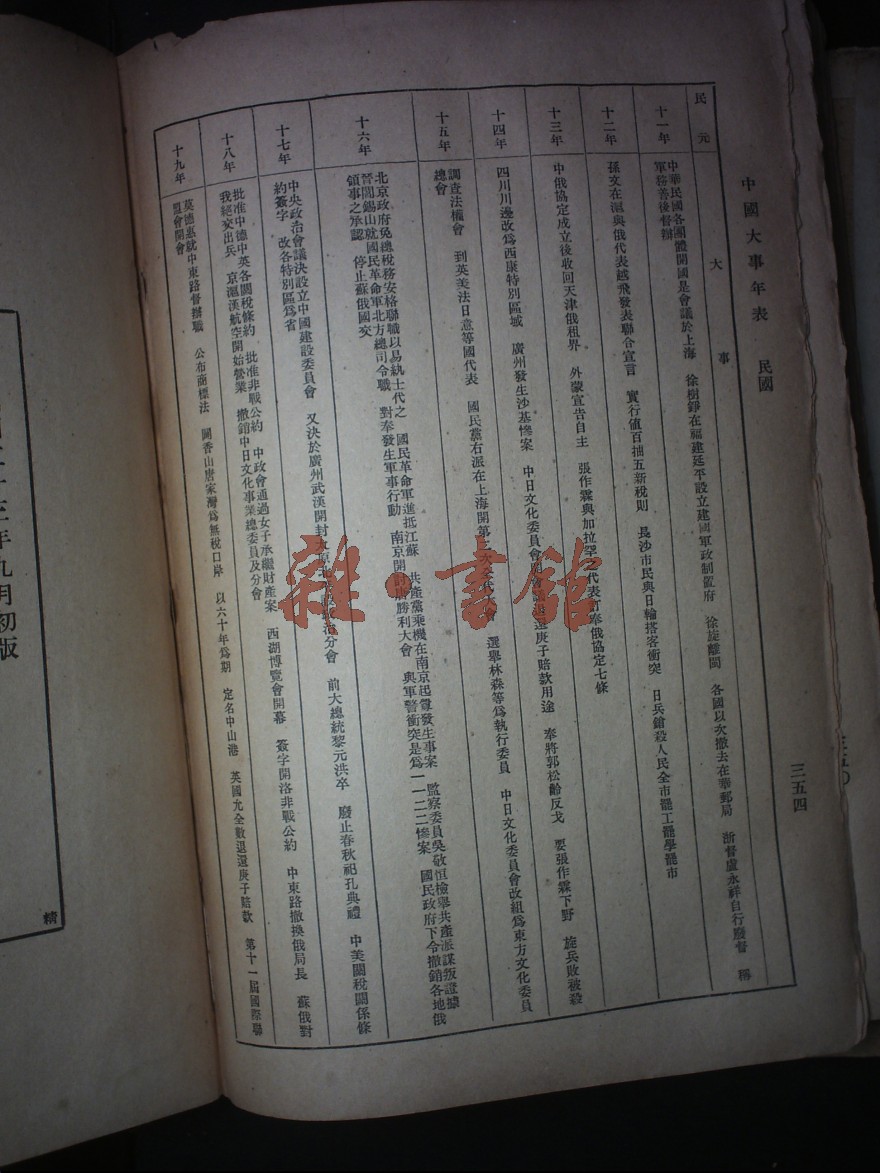 中國大事年表　民國
三五四
民元
大事
十一年
中華民國各團體開國是會議於上海　徐樹錚在福建延平設立建國軍政制置府　徐旋離閩　各國以次撤去在華郵局　浙督盧永祥自行廢督　稱
軍務善後督辦
十二年
孫文在滬與俄代表越飛發表聯合宣言　實行值百抽五新稅則　長沙市民與日輪搭客衝突　日兵鎗殺人民全市罷工罷學罷市
十三年
中俄協定成立後收回天津俄租界　外蒙宣告自主　張作霖與加拉罕之代表訂奉俄協定七條
十四年
四川川邊改爲西康特別區域　廣州發生沙基慘案　中日文化委員會開會議退還庚子賠款用途　奉將郭松齡反戈　要張作霖下野　旋兵敗被殺
十五年
調查法權會　到英美法日意等國代表　國民黨右派在上海開第二次全代會　選舉林森等爲執行委員　中日文化委員會改組爲東方文化委員
總會
十六年
北京政府免總稅務安格聯職以易紈士代之　國民革命軍進抵江蘇　共產黨乘機在南京起釁發生事案　監察委員吳敬恒檢舉共產派謀叛證據
晉閻錫山就國民革命軍北方總司令職　對奉發生軍事行動　南京開討唐勝利大會　與軍警衝突是爲一一二二慘案　國民政府下令撤銷各地俄
領事之承認　停止蘇俄國交
十七年
中央政治會議決設立中國建設委員會　又決於廣州武漢開封太原北平設政治分會　前大總統黎元洪卒　廢止春秋祀孔典禮　中美關稅關係條
約簽字　改各特別區爲省
十八年
批准中德中英各關稅條約　批准非戰公約　中政會通過女子承繼財產案　西湖博覽會開幕　簽字開洛非戰公約　中東路撤換俄局長　蘇俄對
我絕交出兵　京滬漢航空開始營業　撤銷中日文化事業總委員及分會
十九年
莫德惠就中東路督辦職　公布商標法　闢香山唐家灣爲無稅口岸　以六十年爲期　定名中山港　英國允全數退還庚子賠款　第十一屆國際聯
盟會開會
雜·書館
年九月初版
精